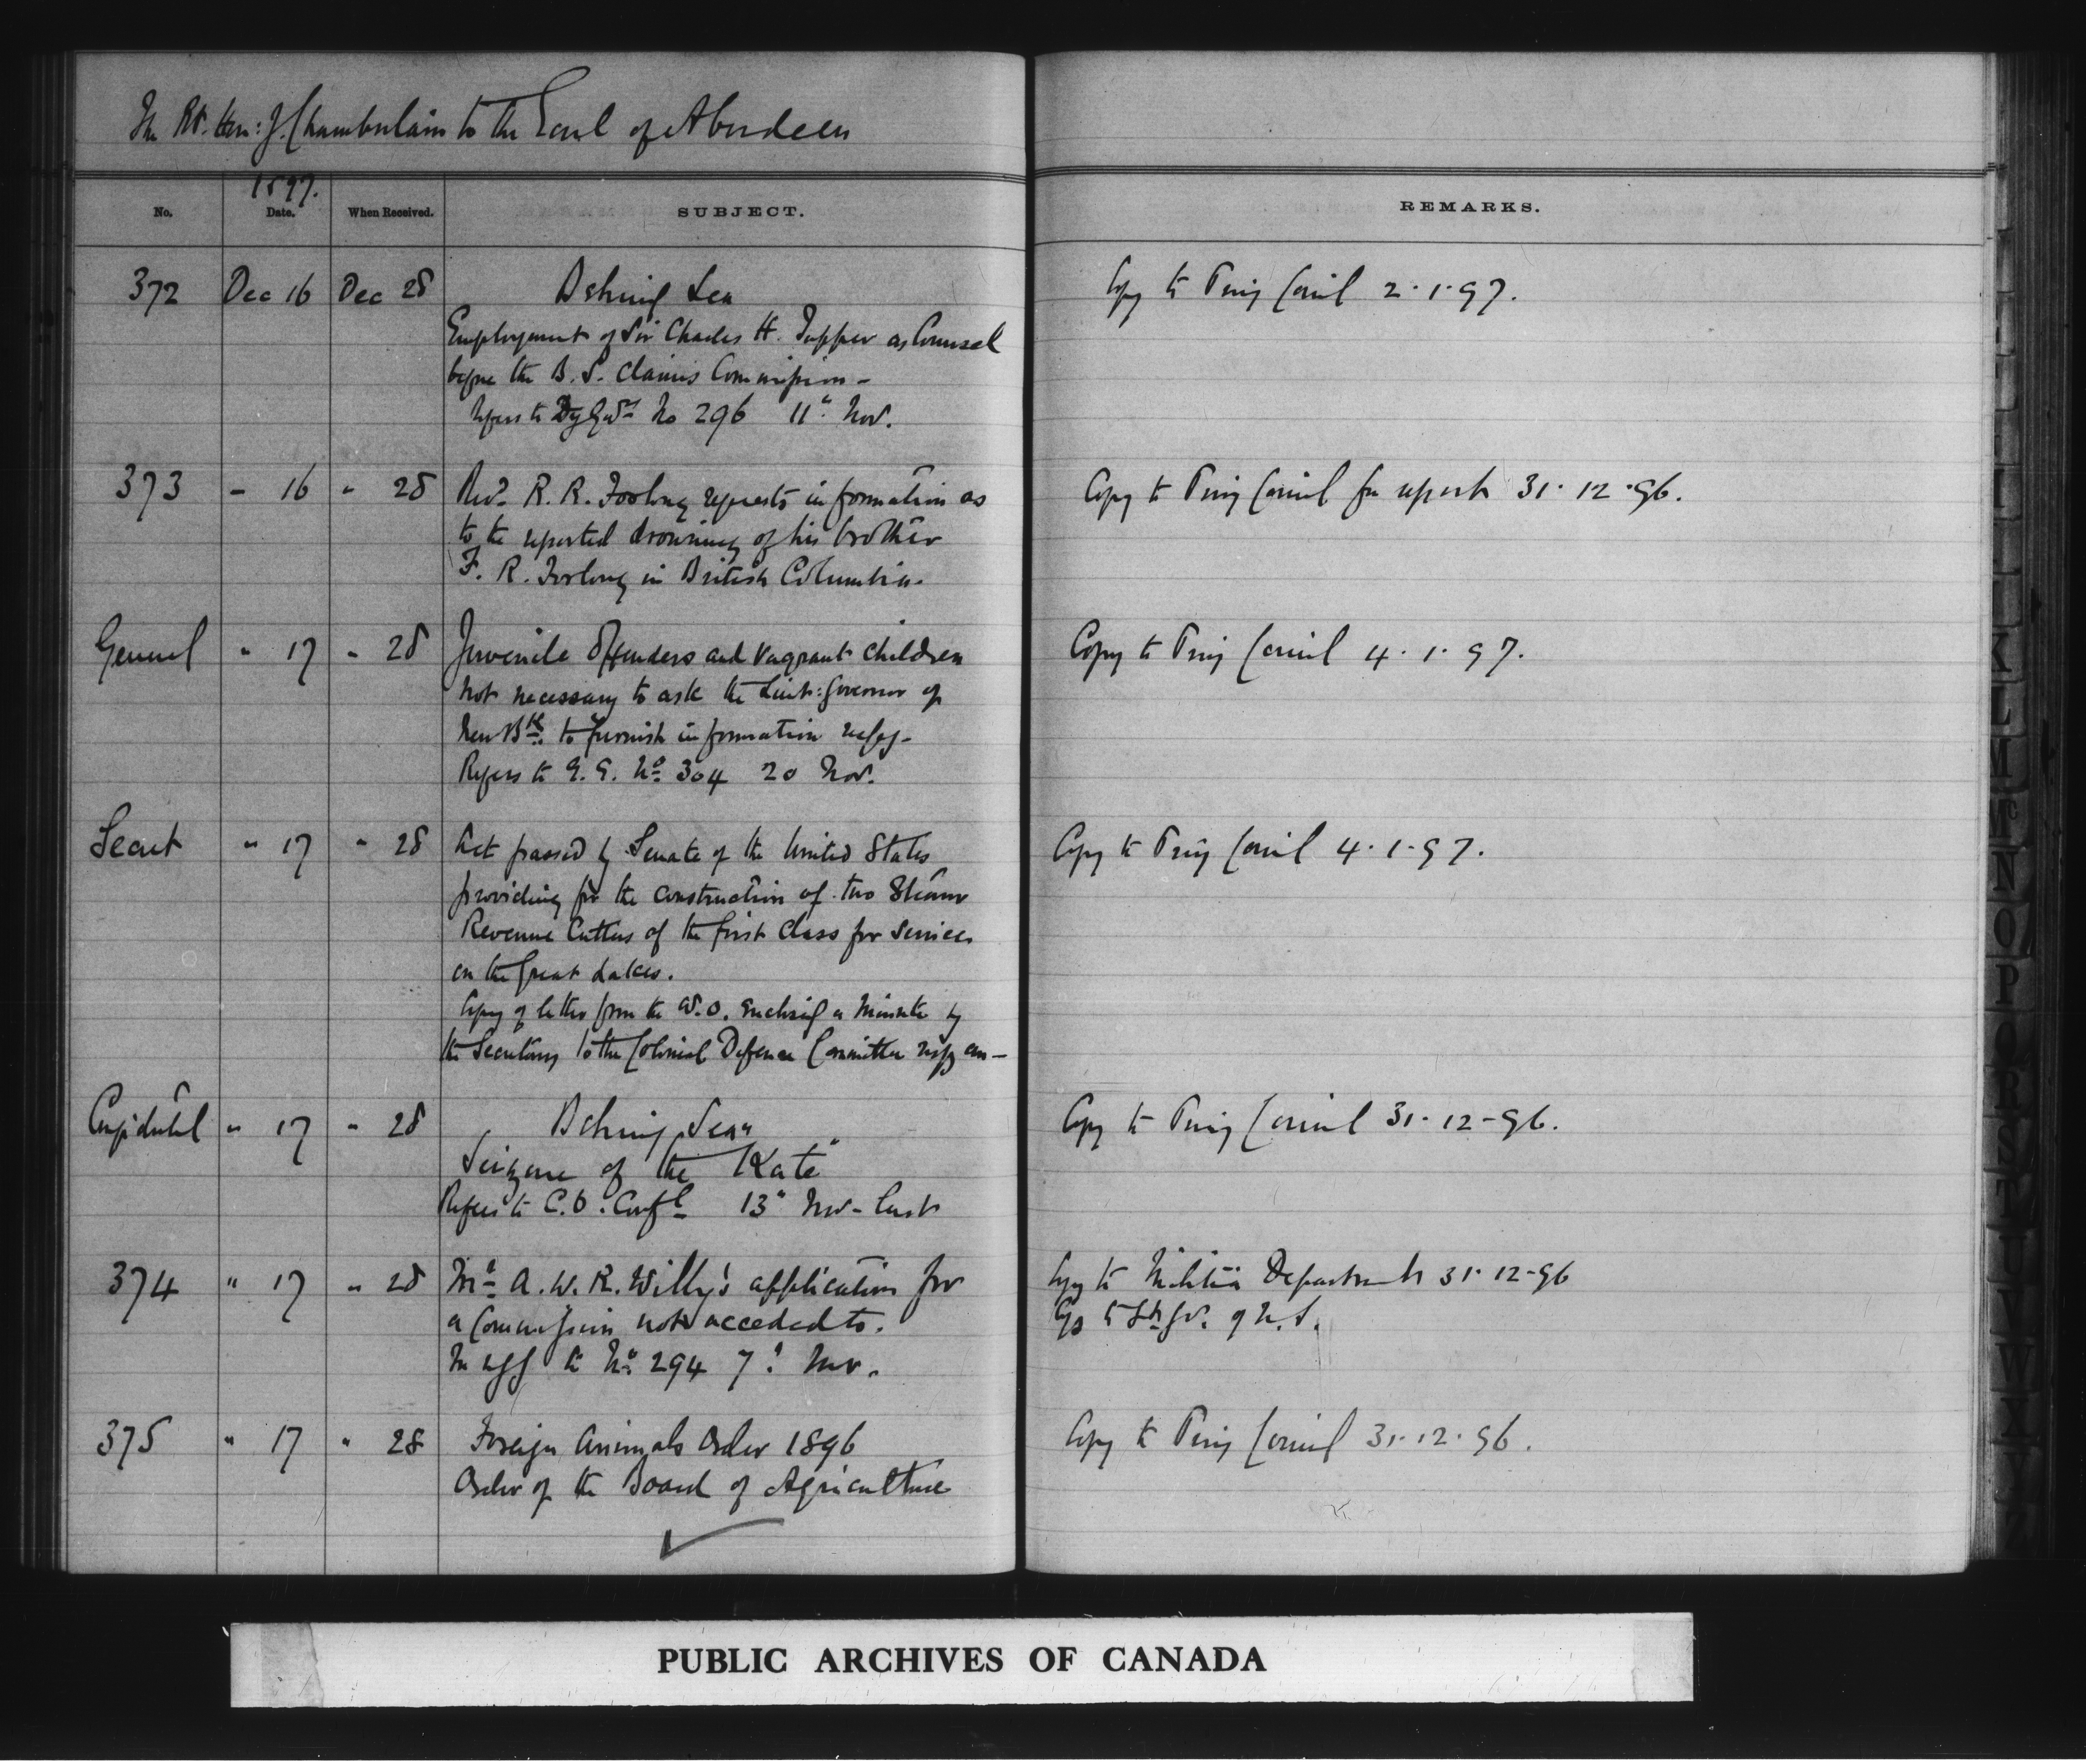 The Rt. Hon: J. Chamberlain to the Earl of Aberdeen
1897.
No. Date. When Received. SUBJECT. REMARKS.
372 Dec 16 Dec 28 Behring Sea Copy to Privy Council 2.1.97.
Employment of Sir Charles H. Tupper as Counsel
before the B. S. Claims Commission -
Refers to No 296 11" Nov.
373 - 16 " 28 Revd R. R. Forlong requests information as Copy to Privy Council for report 31.12.96.
to the reported drowning of his brother
F. R. Forlong in British Columbia.
General " 17 " 28 Juvenile Offenders and Vagrant Children Copy to Privy Council 4.1.97.
Not necessary to ask the Lieut: Governor of
New Bk. to furnish information respg -
Refers to G. G. No 304 20 Nov.
Secret " 17 " 28 Act passed by Senate of the United States Copy to Privy Council 4.1.97.
providing for the construction of two Steam
Revenue Cutters of the first Class for Services
on the Great Lakes.
Copy of letter from the W.O. enclosing a Minute by
the Secretary to the Colonial Defence Committee respg
Confidential " 17 " 28 Behring Sea Copy to Privy Council 31-12-96.
Seizure of the "Kate"
Refers to C.O. Confl 13" Nov - last
374 " 17 " 28 Mr A. W. R. Willy's application for Copy to Militia Department 31.12-96
a Commission not acceded to. Cys to Lt Gov. of N.S.
In to No. 294 7" Nov.
375 " 17 " 28 Foreign Animals Order 1896 Copy to Privy Council 31.12.96.
Order of the Board of Agriculture
K
L
M
Mc
N
O
P
Q
R
S
T
U
V
W
X
Y
Z
PUBLIC ARCHIVES OF CANADA